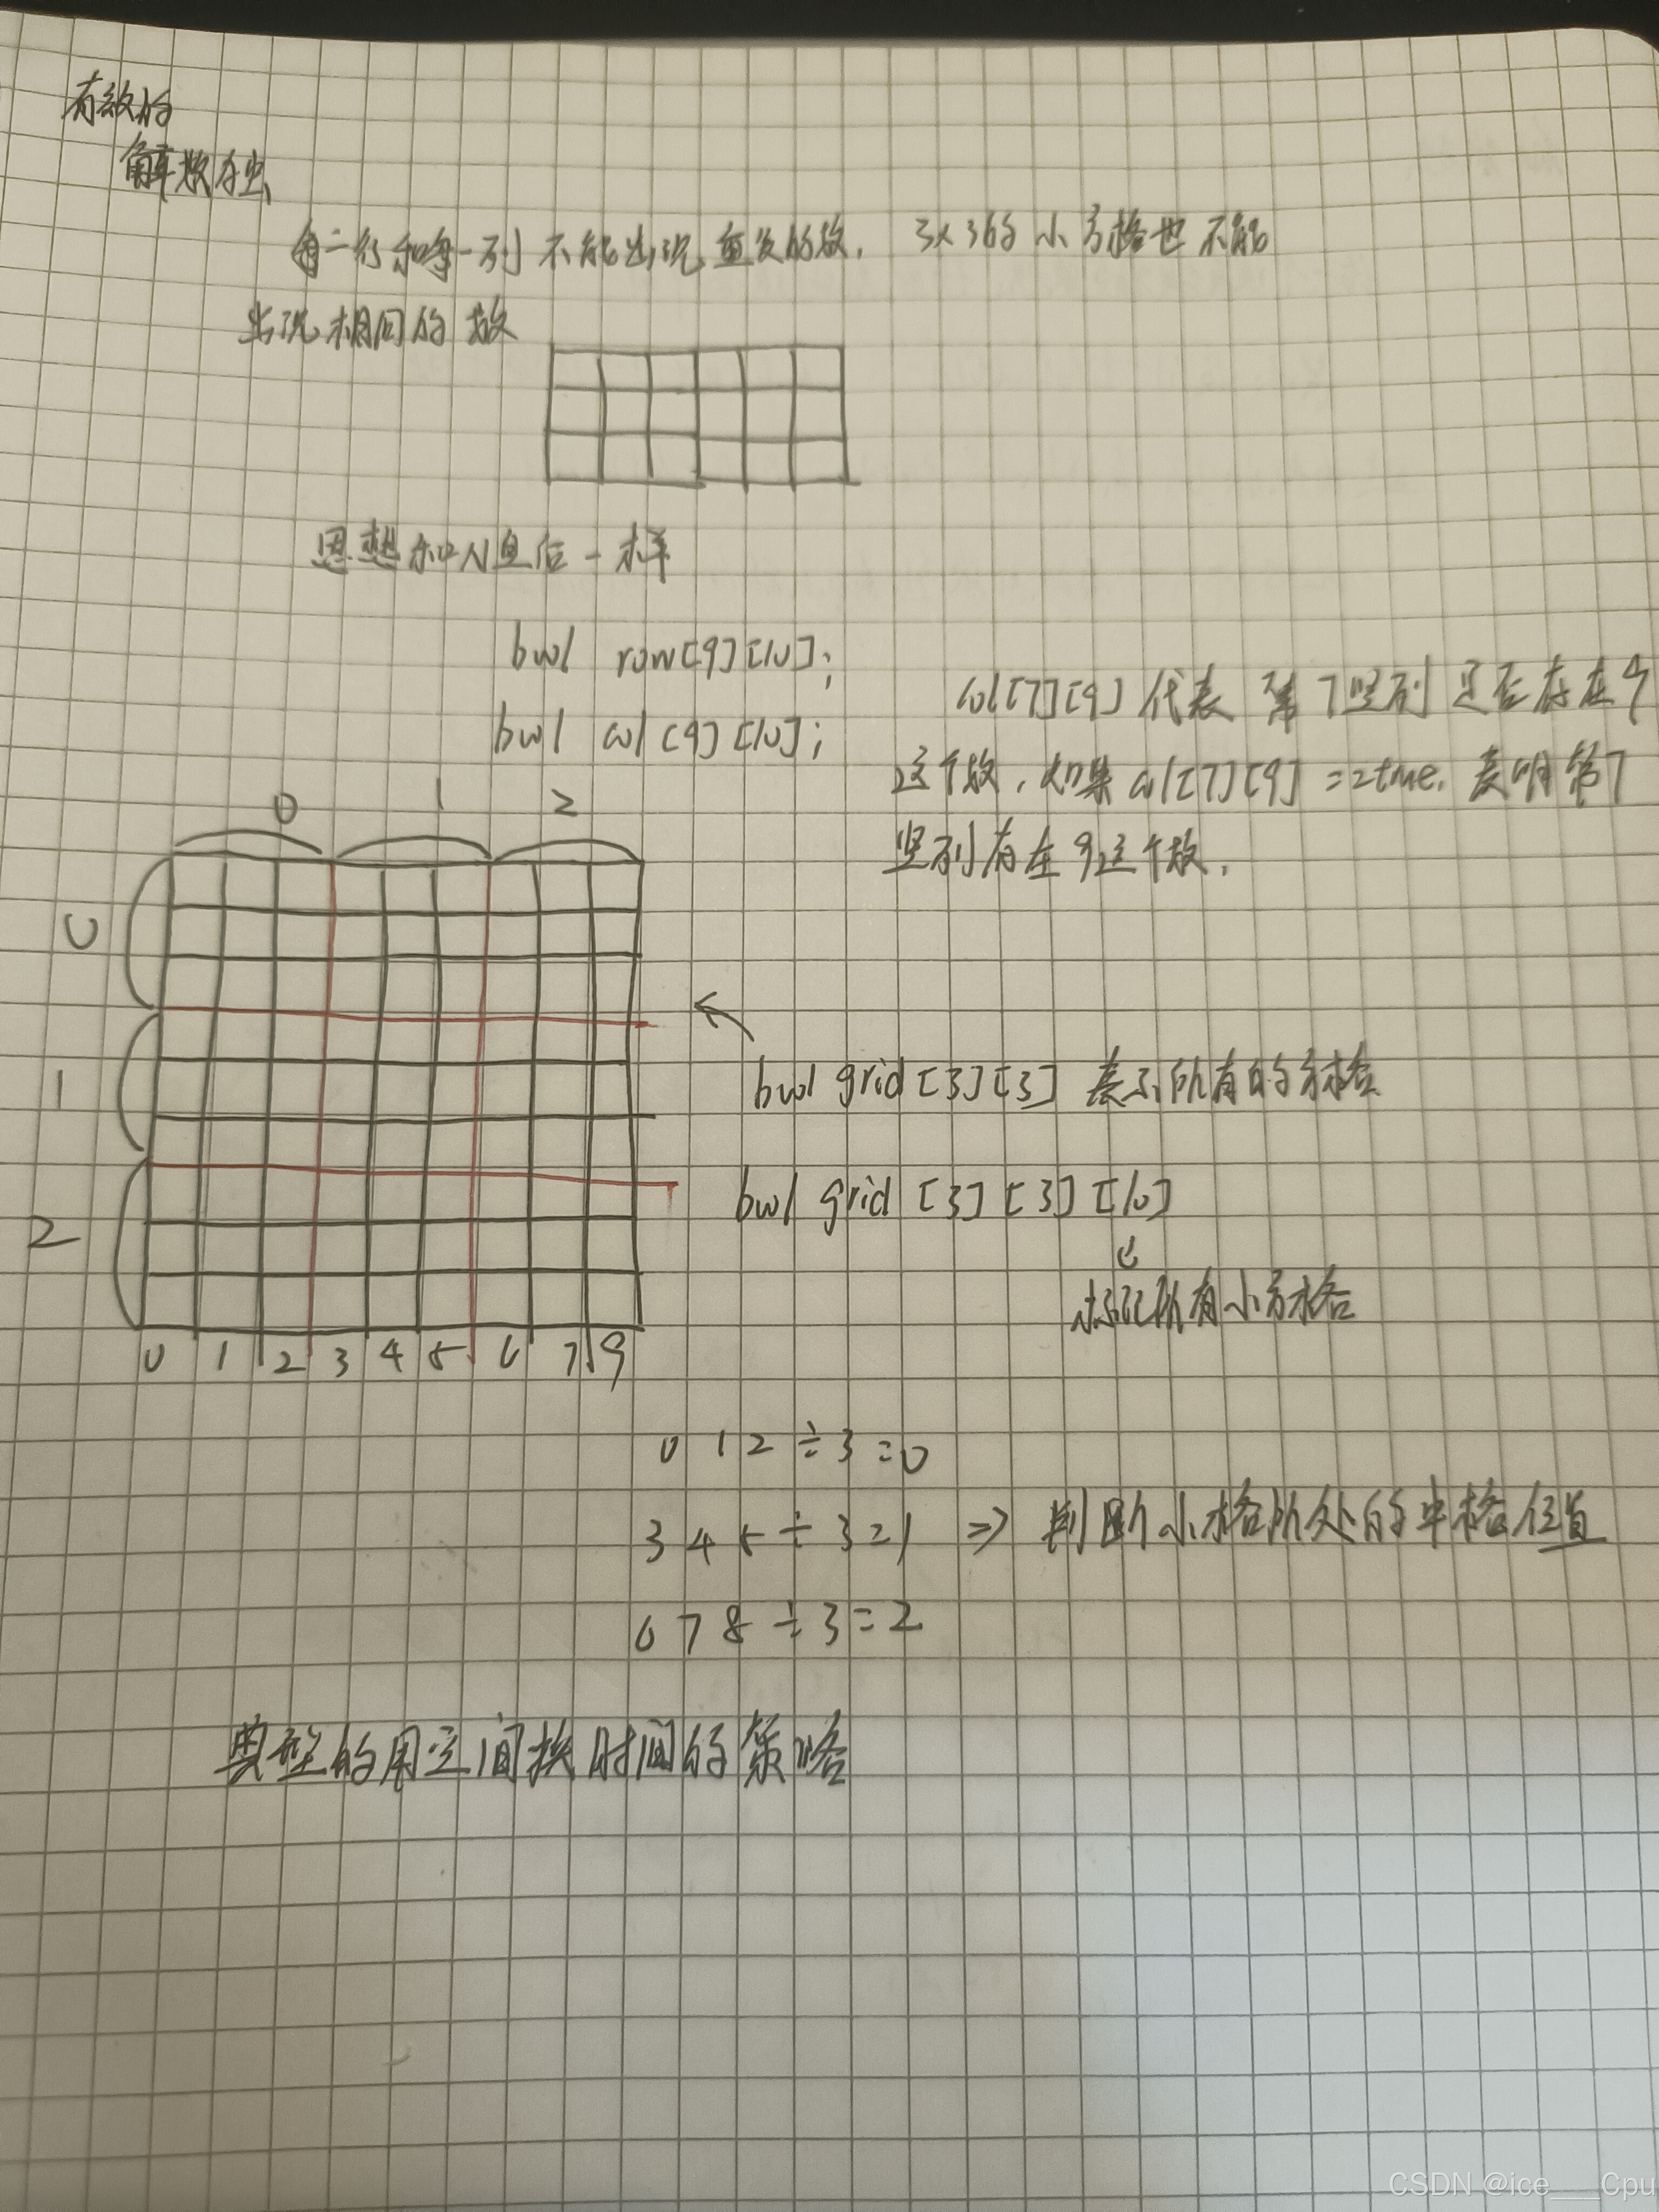 有效的
解数独
每一行和每一列 不能出现重复的数, 3x3的小方格也不能
出现相同的数
思想和N皇后一样
bool row[9][10];
bool col[9][10];
col[7][9]代表 第7竖列是否存在9
这个数,如果col[7][9]==true,表明第7
竖列存在9这个数,
0 1 2
0
1
2
bool grid[3][3] 表示所有的方格
bool grid[3][3][10]
标记所有小方格
0 1 2 3 4 5 6 7 9
0 1 2 ÷ 3 = 0
3 4 5 ÷ 3 = 1 => 判断小格所处的中格位置
6 7 8 ÷ 3 = 2
典型的用空间换时间的策略
CSDN @ice___Cpu